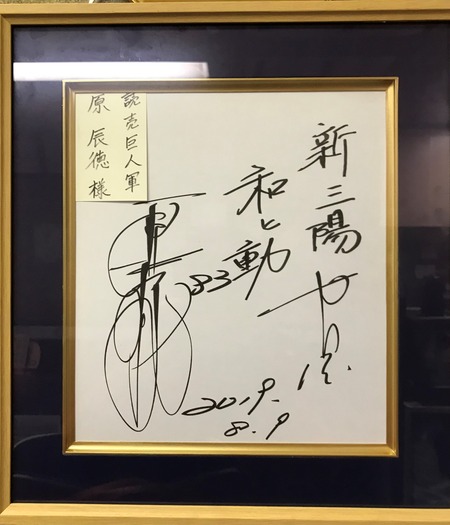 新三陽
和と動
83
2019.
8.9
読売巨人軍
原辰徳様